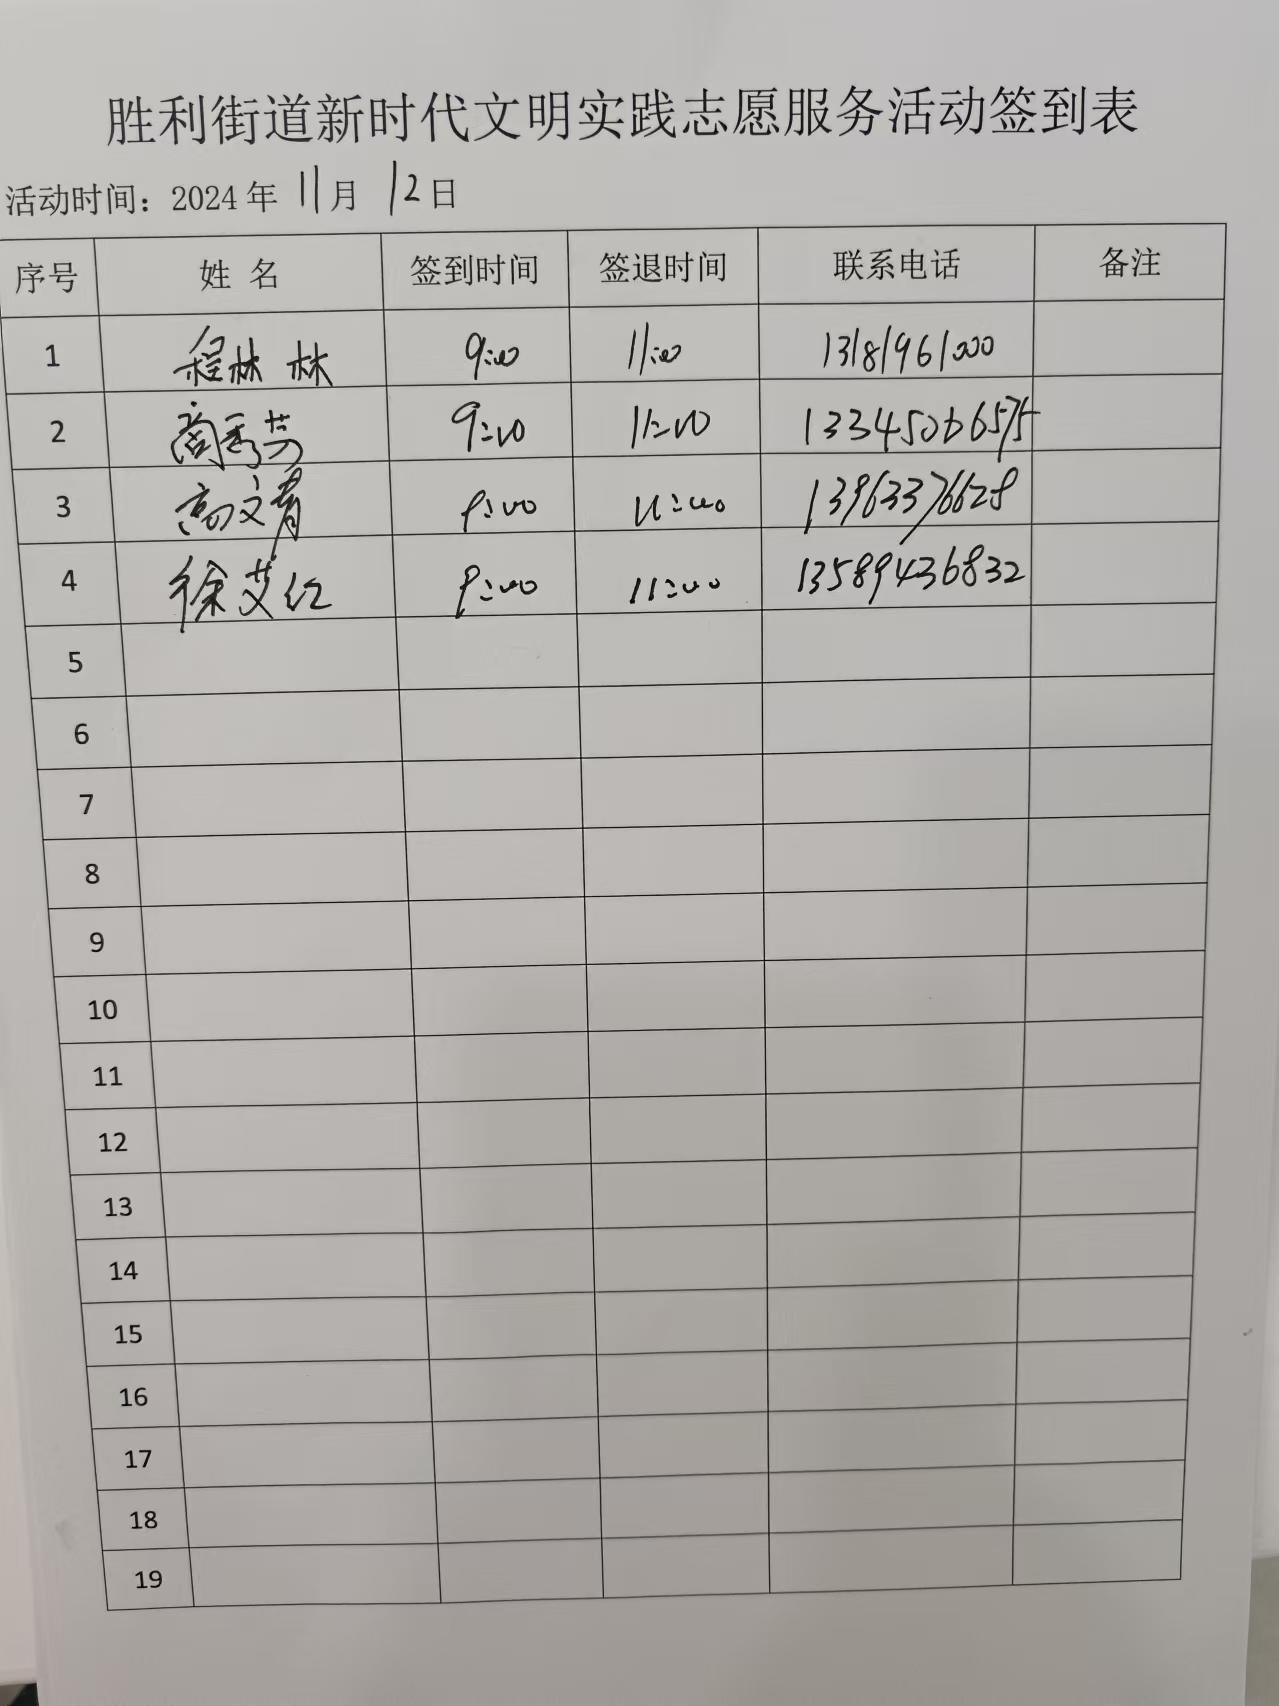 胜利街道新时代文明实践志愿服务活动签到表
活动时间：2024年 11月 12日
序号 姓 名 签到时间 签退时间 联系电话 备注
1 程林林 9:00 11:00 13181961000
2 尚秀芳 9:00 11:00 13345066575
3 高文青 9:00 11:00 13963376628
4 徐艾红 9:00 11:00 13589436832
5
6
7
8
9
10
11
12
13
14
15
16
17
18
19